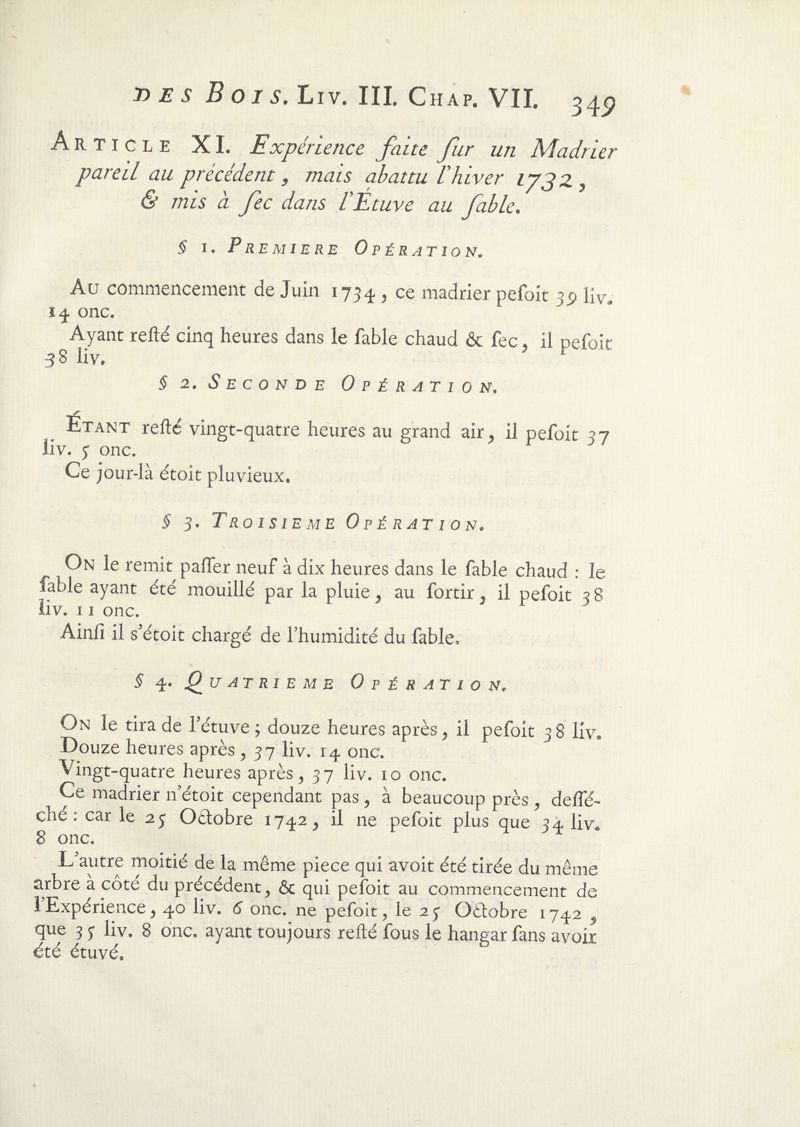 DES BOIS. LIV. III. CHAP. VII. 349
ARTICLE XI. Expérience faite ſur un Madrier
pareil au précédent, mais abattu l'hiver 1732,
& mis à ſec dans l'Étuve au ſable.
§ 1. PREMIERE OPÉRATION.
AU commencement de Juin 1734, ce madrier peſoit 39 liv.
14 onc.
Ayant reſté cinq heures dans le ſable chaud & ſec, il peſoit
38 liv.
§ 2. SECONDE OPÉRATION.
ÉTANT reſté vingt-quatre heures au grand air, il peſoit 37
liv. 5 onc.
Ce jour-là étoit pluvieux.
§ 3. TROISIEME OPÉRATION.
ON le remit paſſer neuf à dix heures dans le ſable chaud : le
ſable ayant été mouillé par la pluie, au ſortir, il peſoit 38
liv. 11 onc.
Ainſi il s'étoit chargé de l'humidité du ſable.
§ 4. QUATRIEME OPÉRATION.
ON le tira de l'étuve ; douze heures après, il peſoit 38 liv.
Douze heures après, 37 liv. 14 onc.
Vingt-quatre heures après, 37 liv. 10 onc.
Ce madrier n'étoit cependant pas, à beaucoup près, deſſé-
ché : car le 25 Octobre 1742, il ne peſoit plus que 34 liv.
8 onc.
L'autre moitié de la même piece qui avoit été tirée du même
arbre à côté du précédent, & qui peſoit au commencement de
l'Expérience, 40 liv. 6 onc. ne peſoit, le 25 Octobre 1742,
que 35 liv. 8 onc. ayant toujours reſté ſous le hangar ſans avoir
été étuvé.